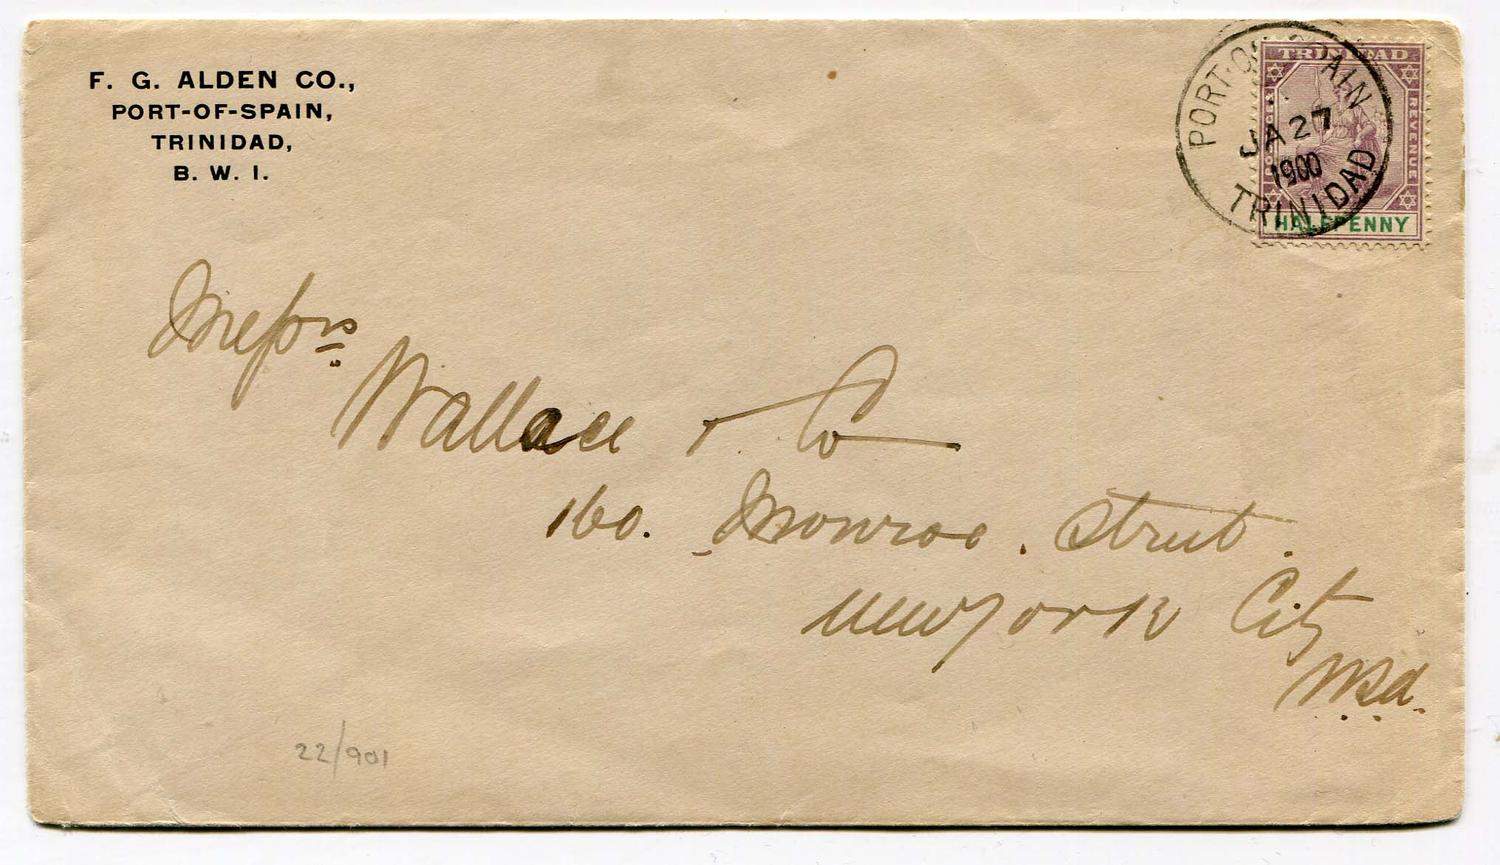 F. G. ALDEN CO.,
PORT-OF-SPAIN,
TRINIDAD,
B. W. I.
PORT-OF-SPAIN
JA 27
1900
TRINIDAD
TRINIDAD
REVENUE
HALFPENNY
Messrs
Wallace & Co
160. Monroe. Street.
New York City
22/901